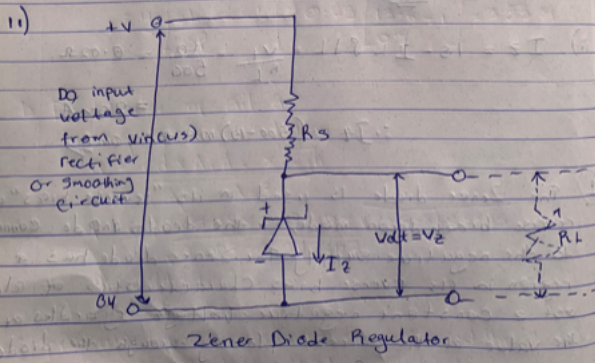 11)
+V
DC input
voltage
from Vin(Vs)
rectifier
or smoothing
circuit
Rs
+
-
Iz
Vout=Vz
RL
0V
Zener Diode Regulator